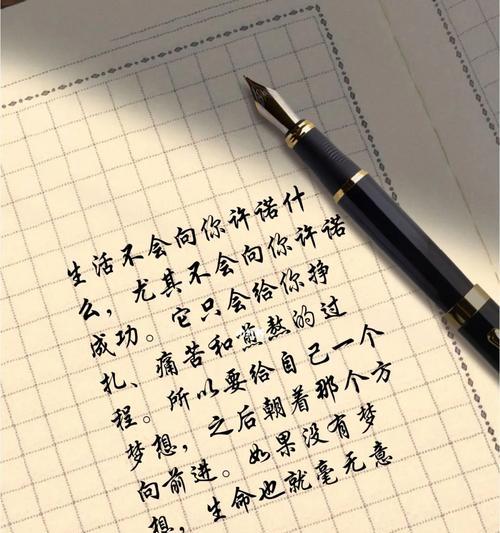 生活不会向你许诺什
么，尤其不会向你许诺
成功。它只会给你挣
扎、痛苦和煎熬的过
程。所以要给自己一个
梦想，之后朝着那个方
向前进。如果没有梦
想，生命也就毫无意